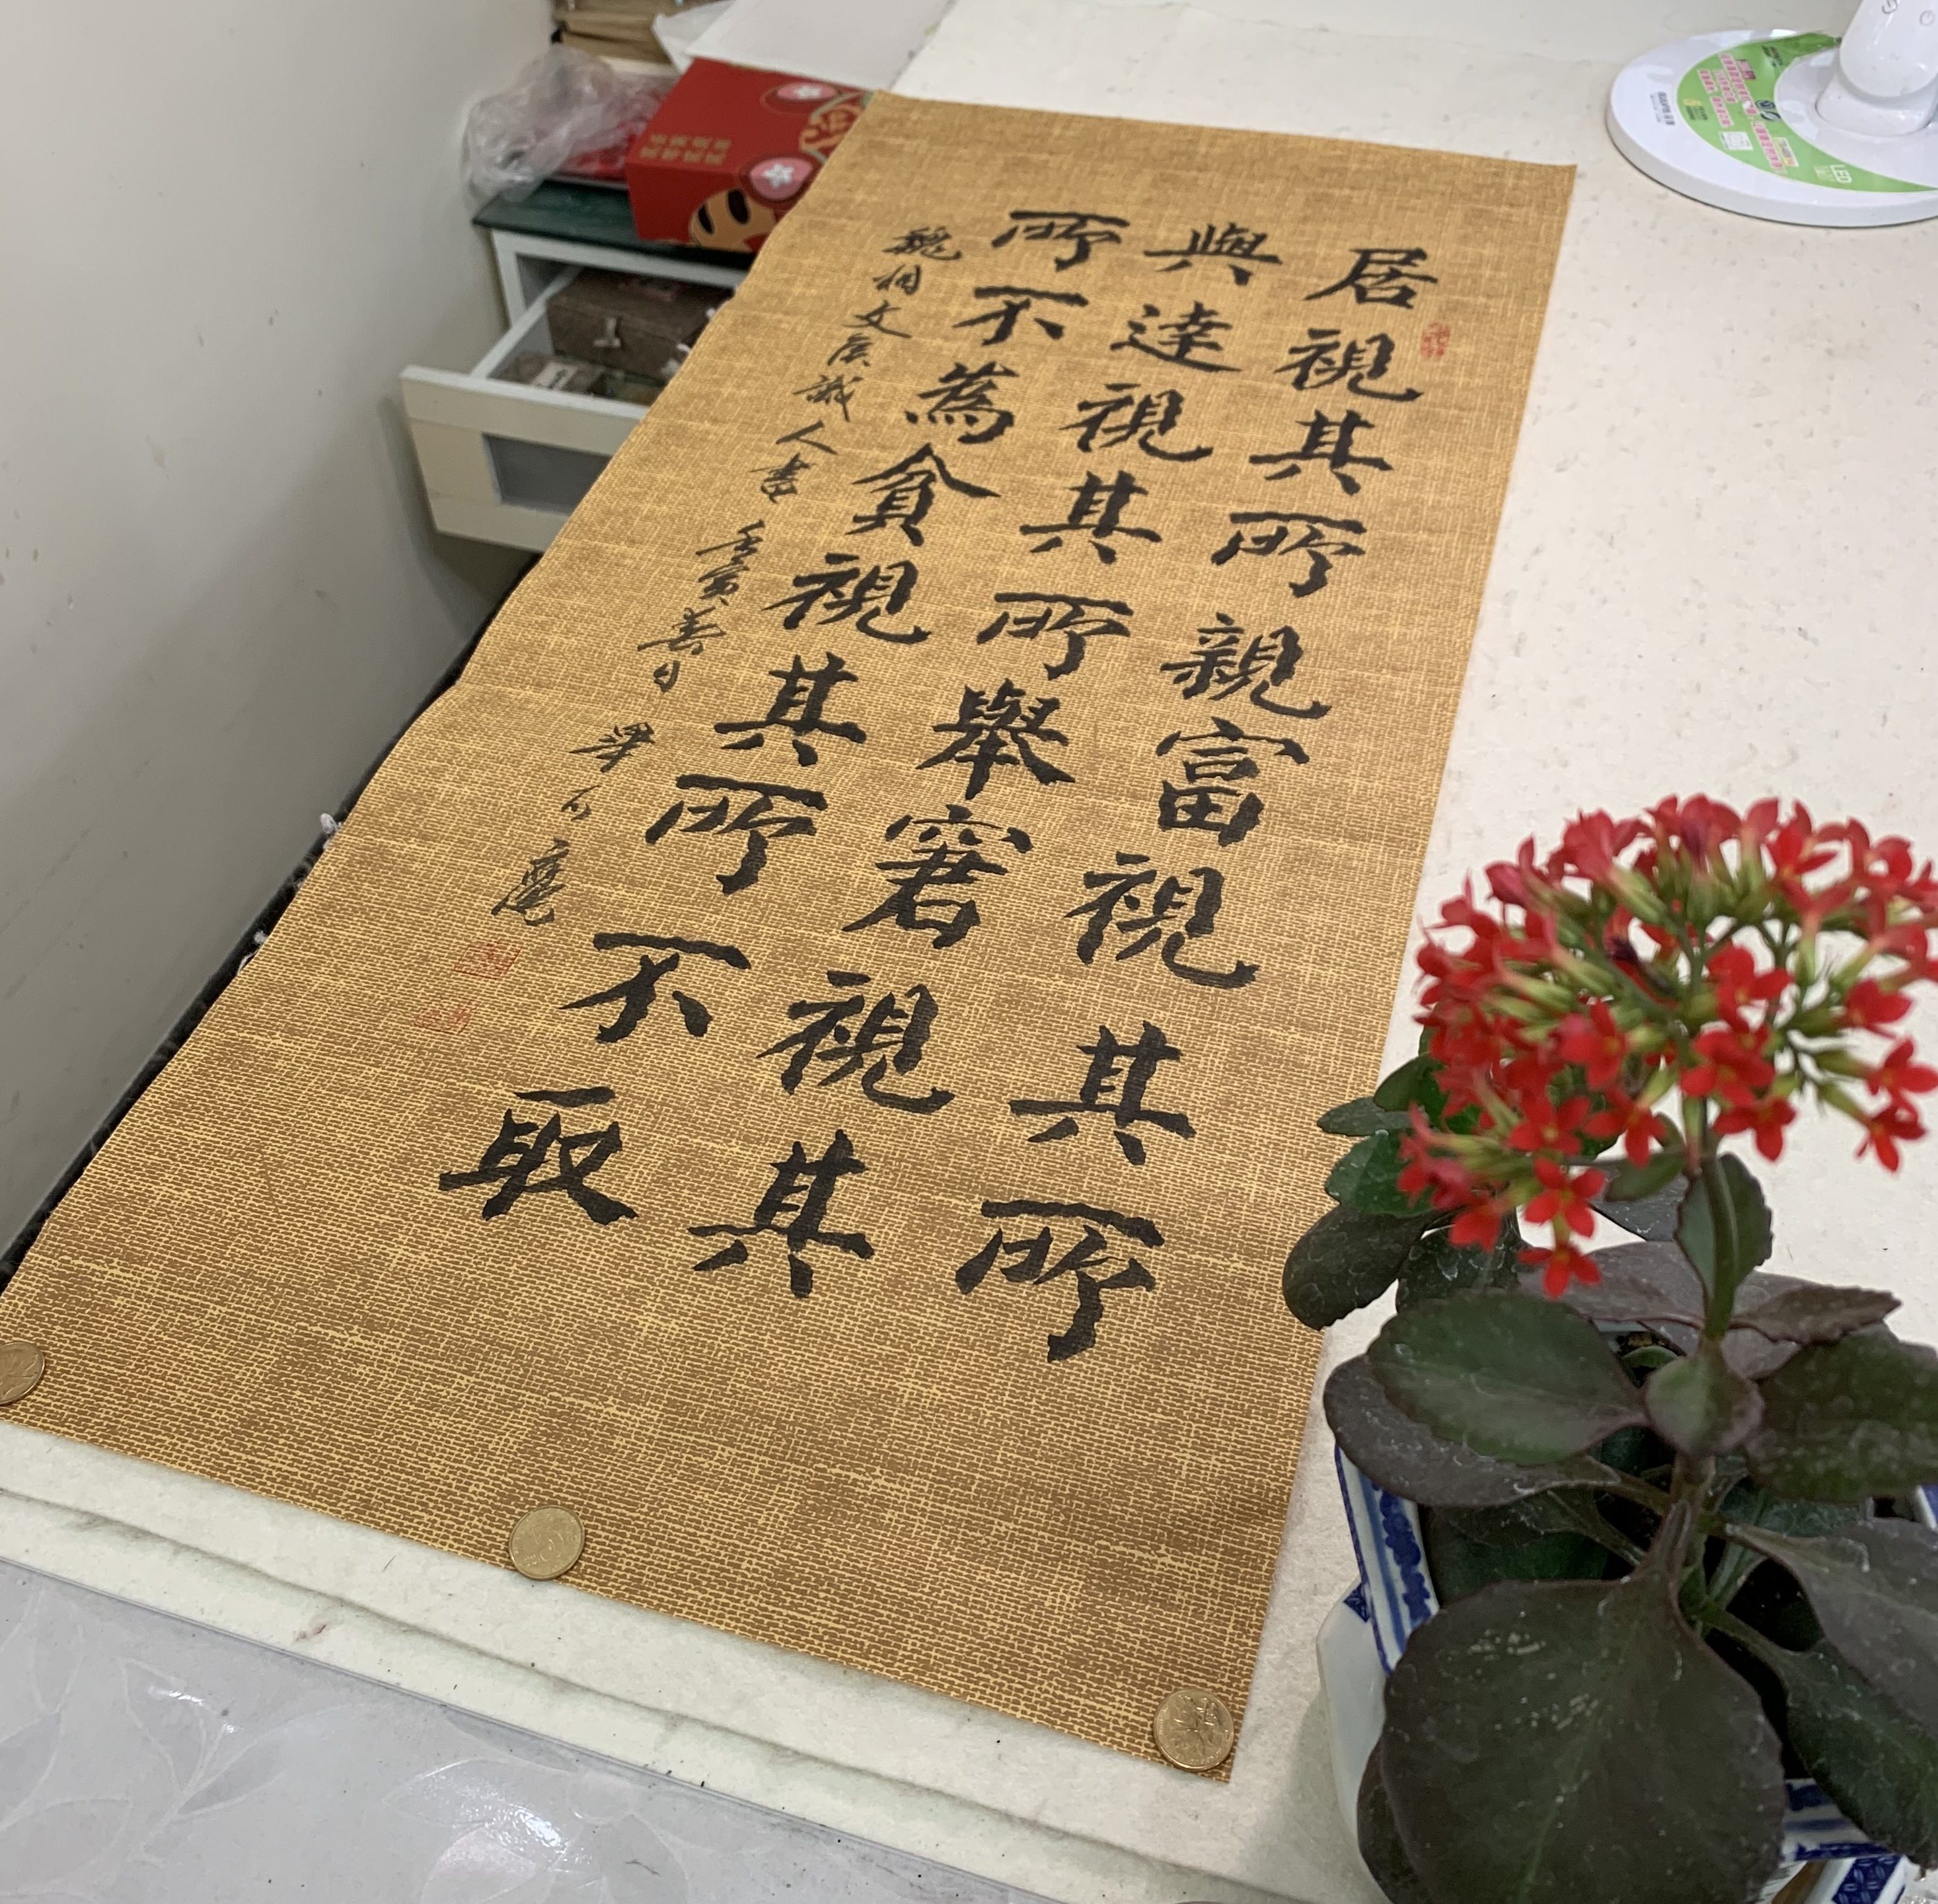 居視其所親富視其所
與達視其所舉窘視其
所不為貪視其所不取
魏相文侯識人書 壬寅春日
LED